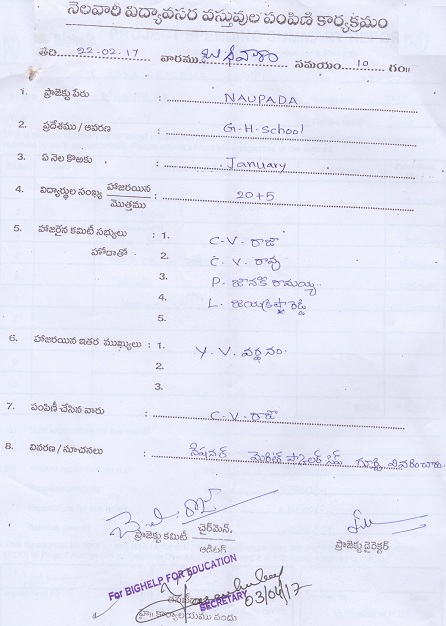 నెలవారి విద్యావసర వస్తువుల పంపిణి కార్యక్రమం
తేది. 22-02-17 వారము. బుధవారం సమయం. 10 గం॥
1. ప్రాజెక్టు పేరు : NAUPADA
2. ప్రదేశము / ఆవరణ : G.H.School
3. ఏ నెల కొఱకు : January
4. విద్యార్థుల సంఖ్య హాజరయిన / మొత్తము : 20+5
5. హాజరైన కమిటీ సభ్యులు : 1. C.V. రాజు
హోదాతో 2. C.V. రావు
3. P. జానకి రామయ్య
4. L. జయకృష్ణా రెడ్డి
5.
6. హాజరయిన ఇతర ముఖ్యులు : 1. Y.V. వర్ధనం.
2.
3.
7. పంపిణీ చేసిన వారు : C.V. రాజు
8. వివరణ / సూచనలు : నేషనల్ మెరిట్ స్కాలర్ షిప్ గూర్చి వివరించారు.
ప్రాజెక్టు కమిటీ చైర్‌మెన్,
ఆడిటర్
ప్రాజెక్టు డైరెక్టర్
For BIGHELP FOR EDUCATION
SECRETARY 03/04/17
కార్యాలయము నందు